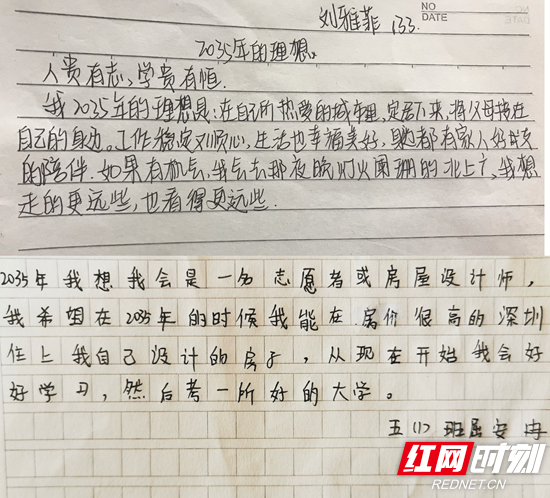 刘雅菲 133
NO
DATE
2035年的理想。
人贵有志，学贵有恒.
我2035年的理想是：在自己的热爱的城市里，定居下来，将父母接在
自己的身边。工作稳定又顺心，生活也幸福美好，身边都有家人好友
的陪伴.如果有机会，我会去那夜晚灯火阑珊的北上广，我想
走的更远些，也看得更远些.
2035年我想我会是一名志愿者或房屋设计师，
我希望在2035年的时候我能在房价很高的深圳
住上我自己设计的房子，从现在开始我会好
好学习，然后考一所好的大学。
五(1)班屈安冉
红网时刻
REDNET.CN